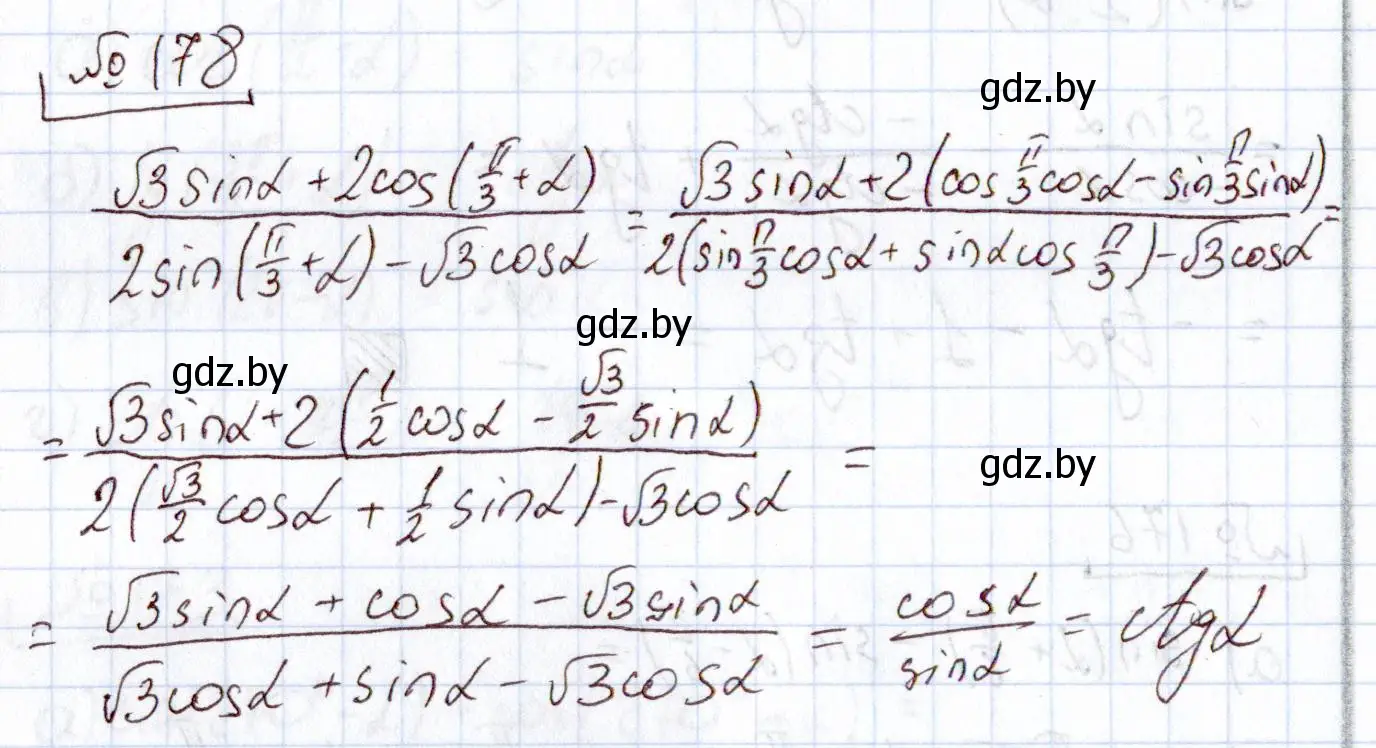 № 178
gdz.by
(√3 sinα + 2cos(π/3 + α)) / (2sin(π/3 + α) - √3 cosα) = (√3 sinα + 2(cos π/3 cosα - sin π/3 sinα)) / (2(sin π/3 cosα + sinα cos π/3) - √3 cosα) =
gdz.by
gdz.by
= (√3 sinα + 2(1/2 cosα - √3/2 sinα)) / (2(√3/2 cosα + 1/2 sinα) - √3 cosα) =
gdz.by
= (√3 sinα + cosα - √3 sinα) / (√3 cosα + sinα - √3 cosα) = cosα / sinα = ctgα